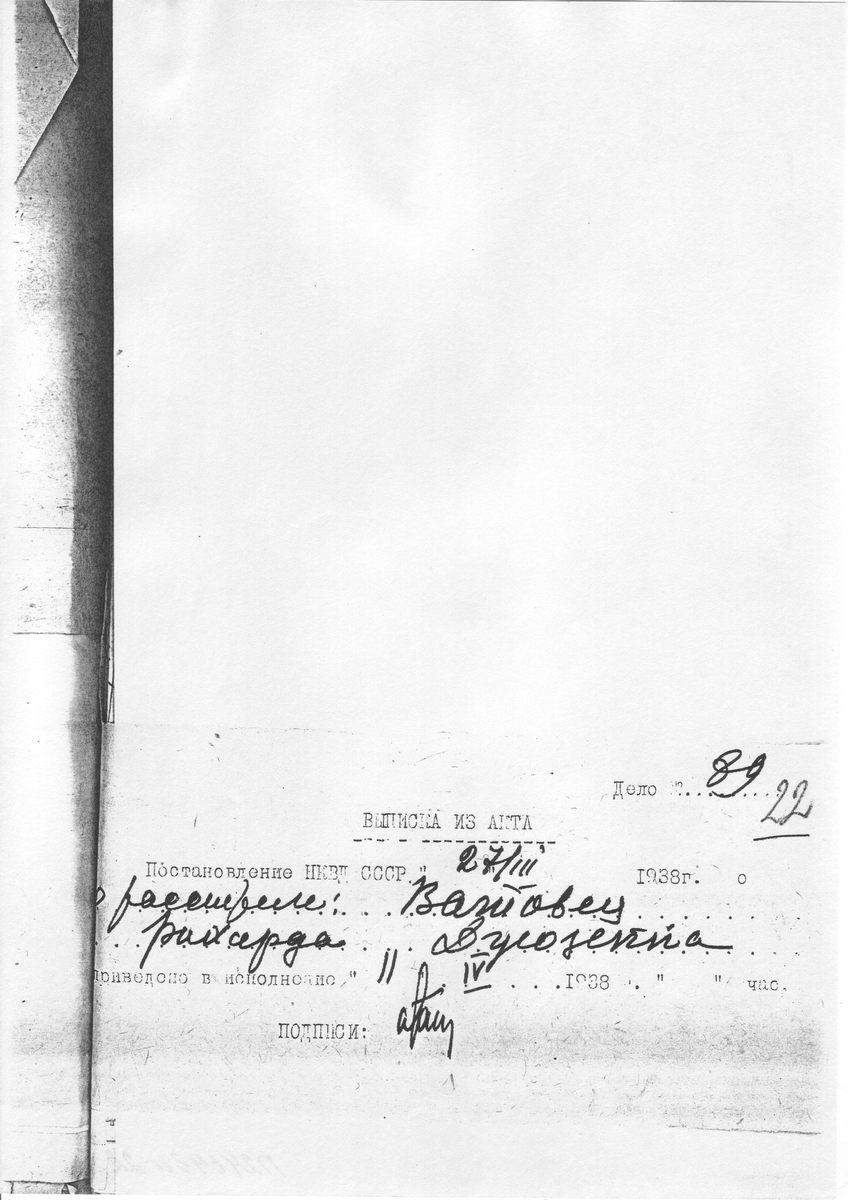 Дело №...89....
22
ВЫПИСКА ИЗ АКТА
Постановление НКВД СССР " 27/III 1938г. о
о расстреле: Ватовец
Рихарда
приведено в исполнение " 11 IV 1938 г. " " час.
ПОДПИСИ: